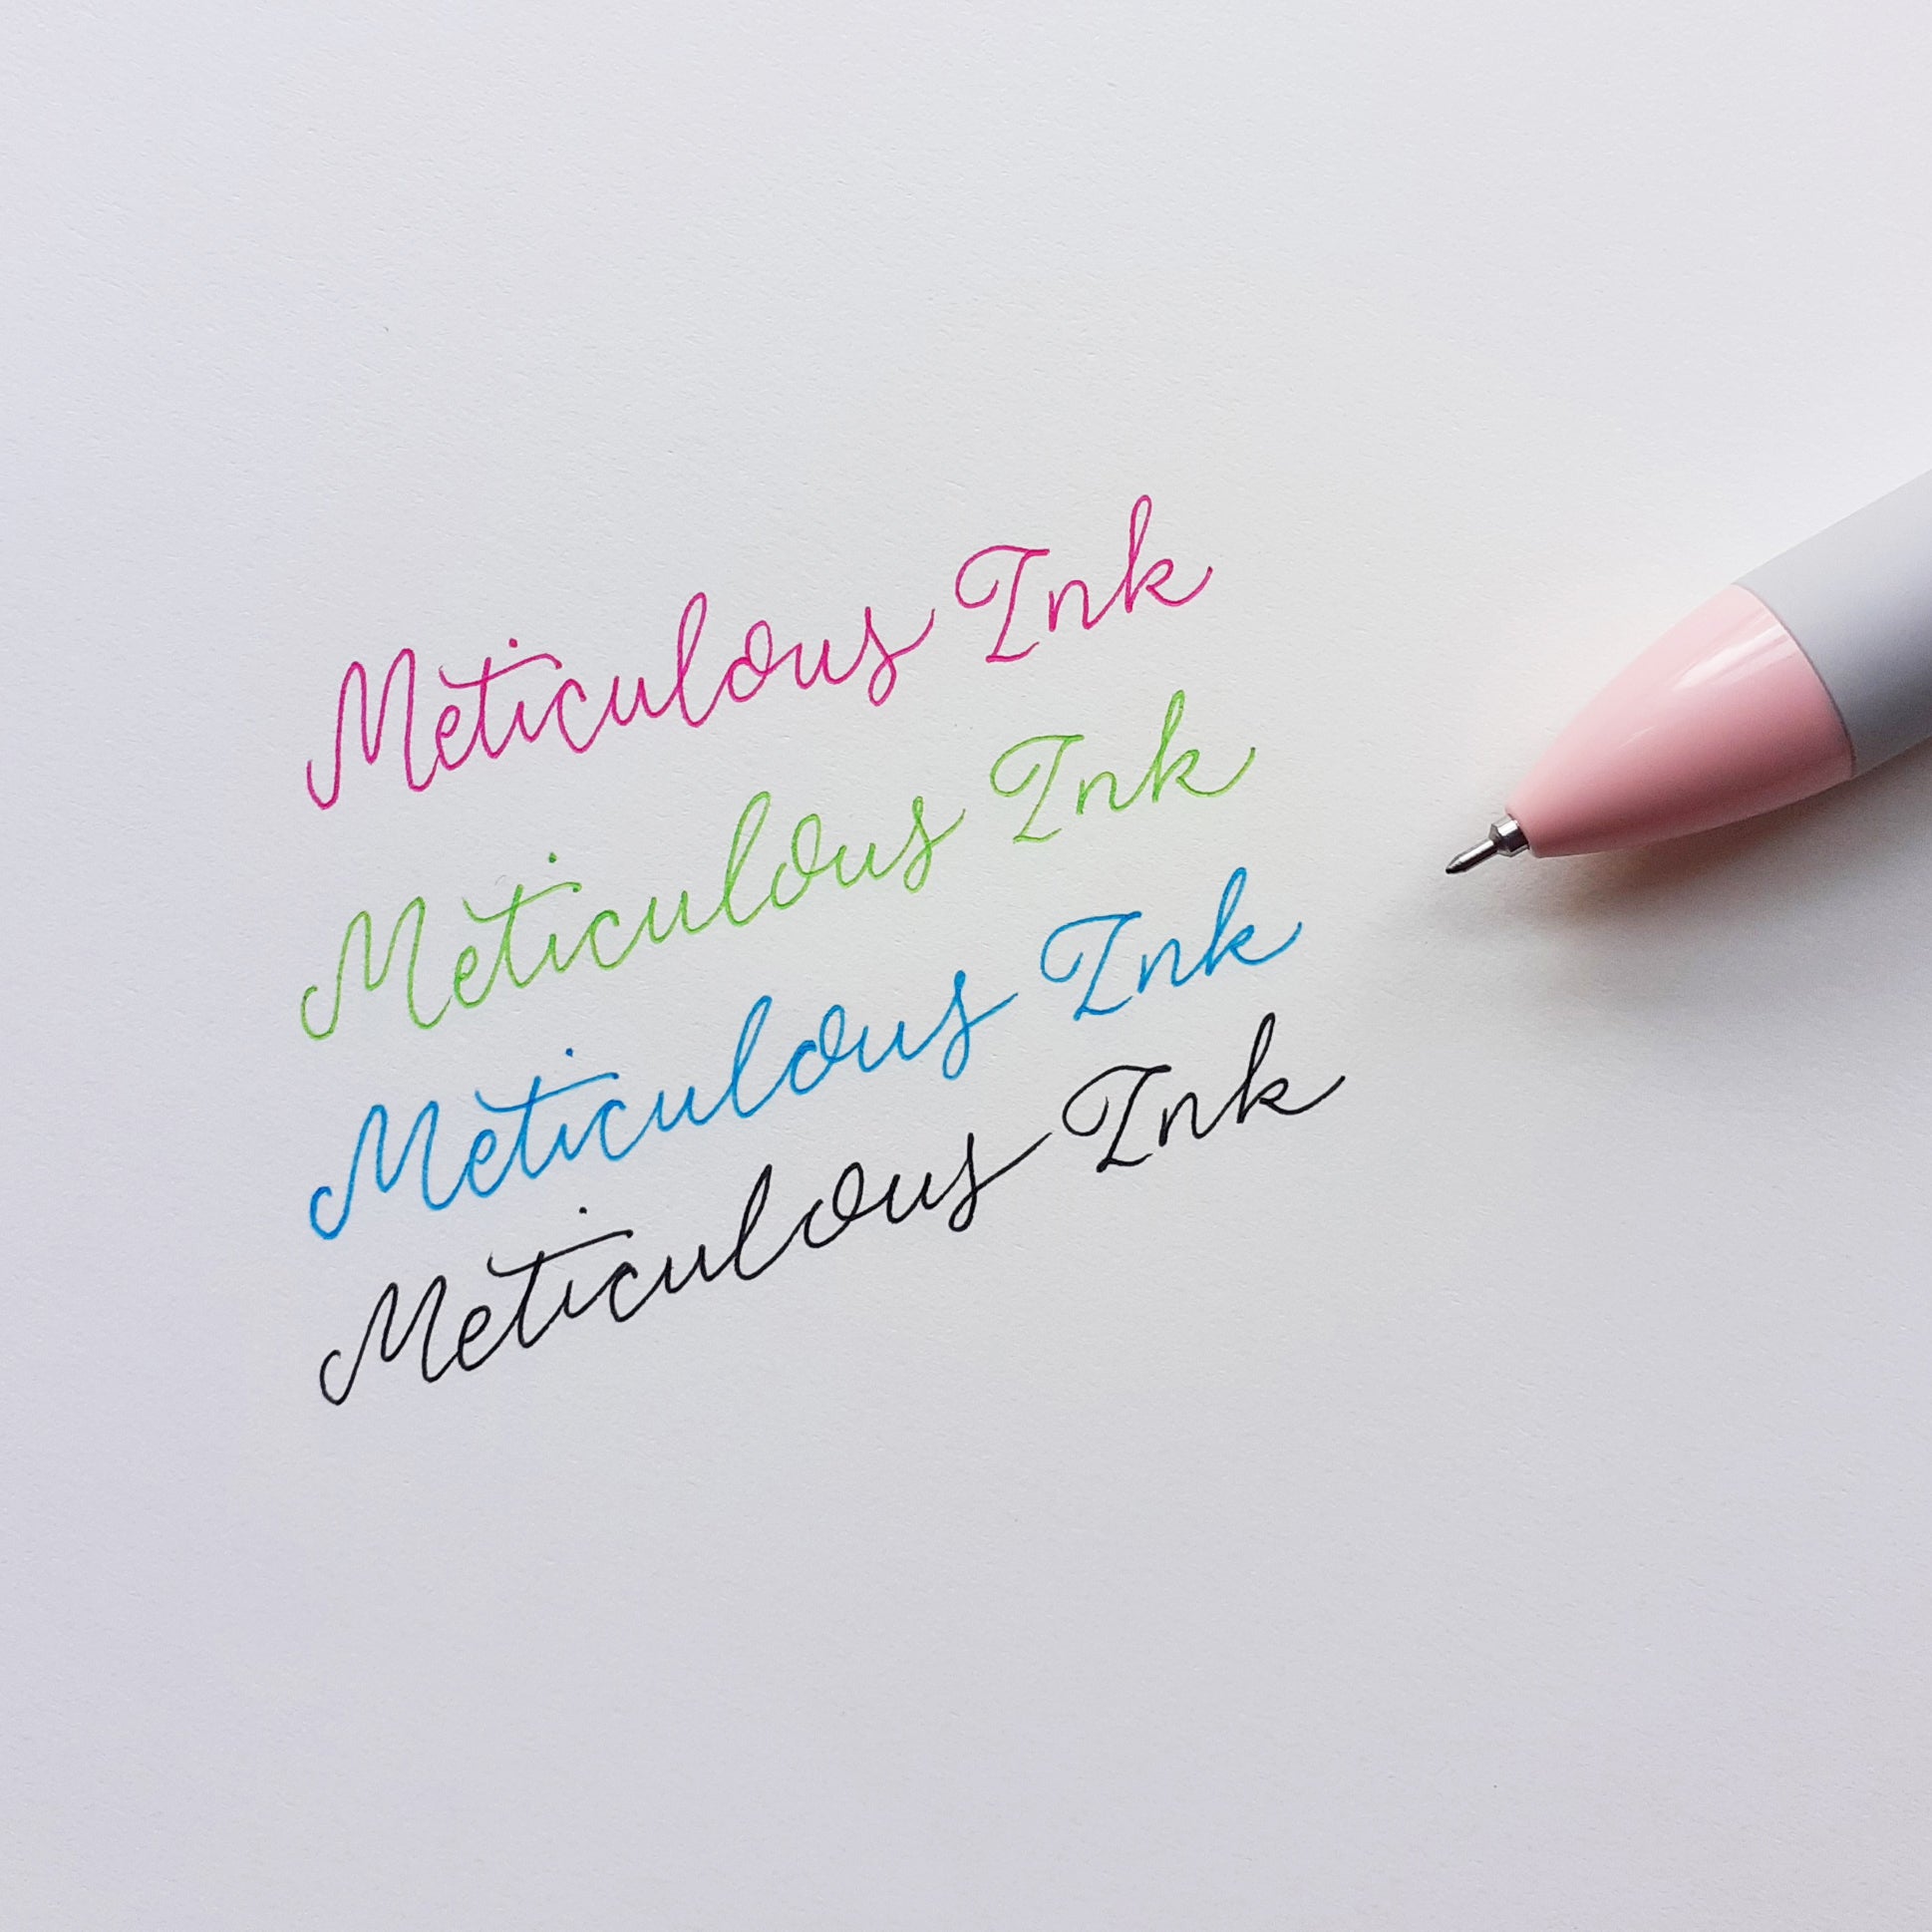 Meticulous Ink
Meticulous Ink
Meticulous Ink
Meticulous Ink